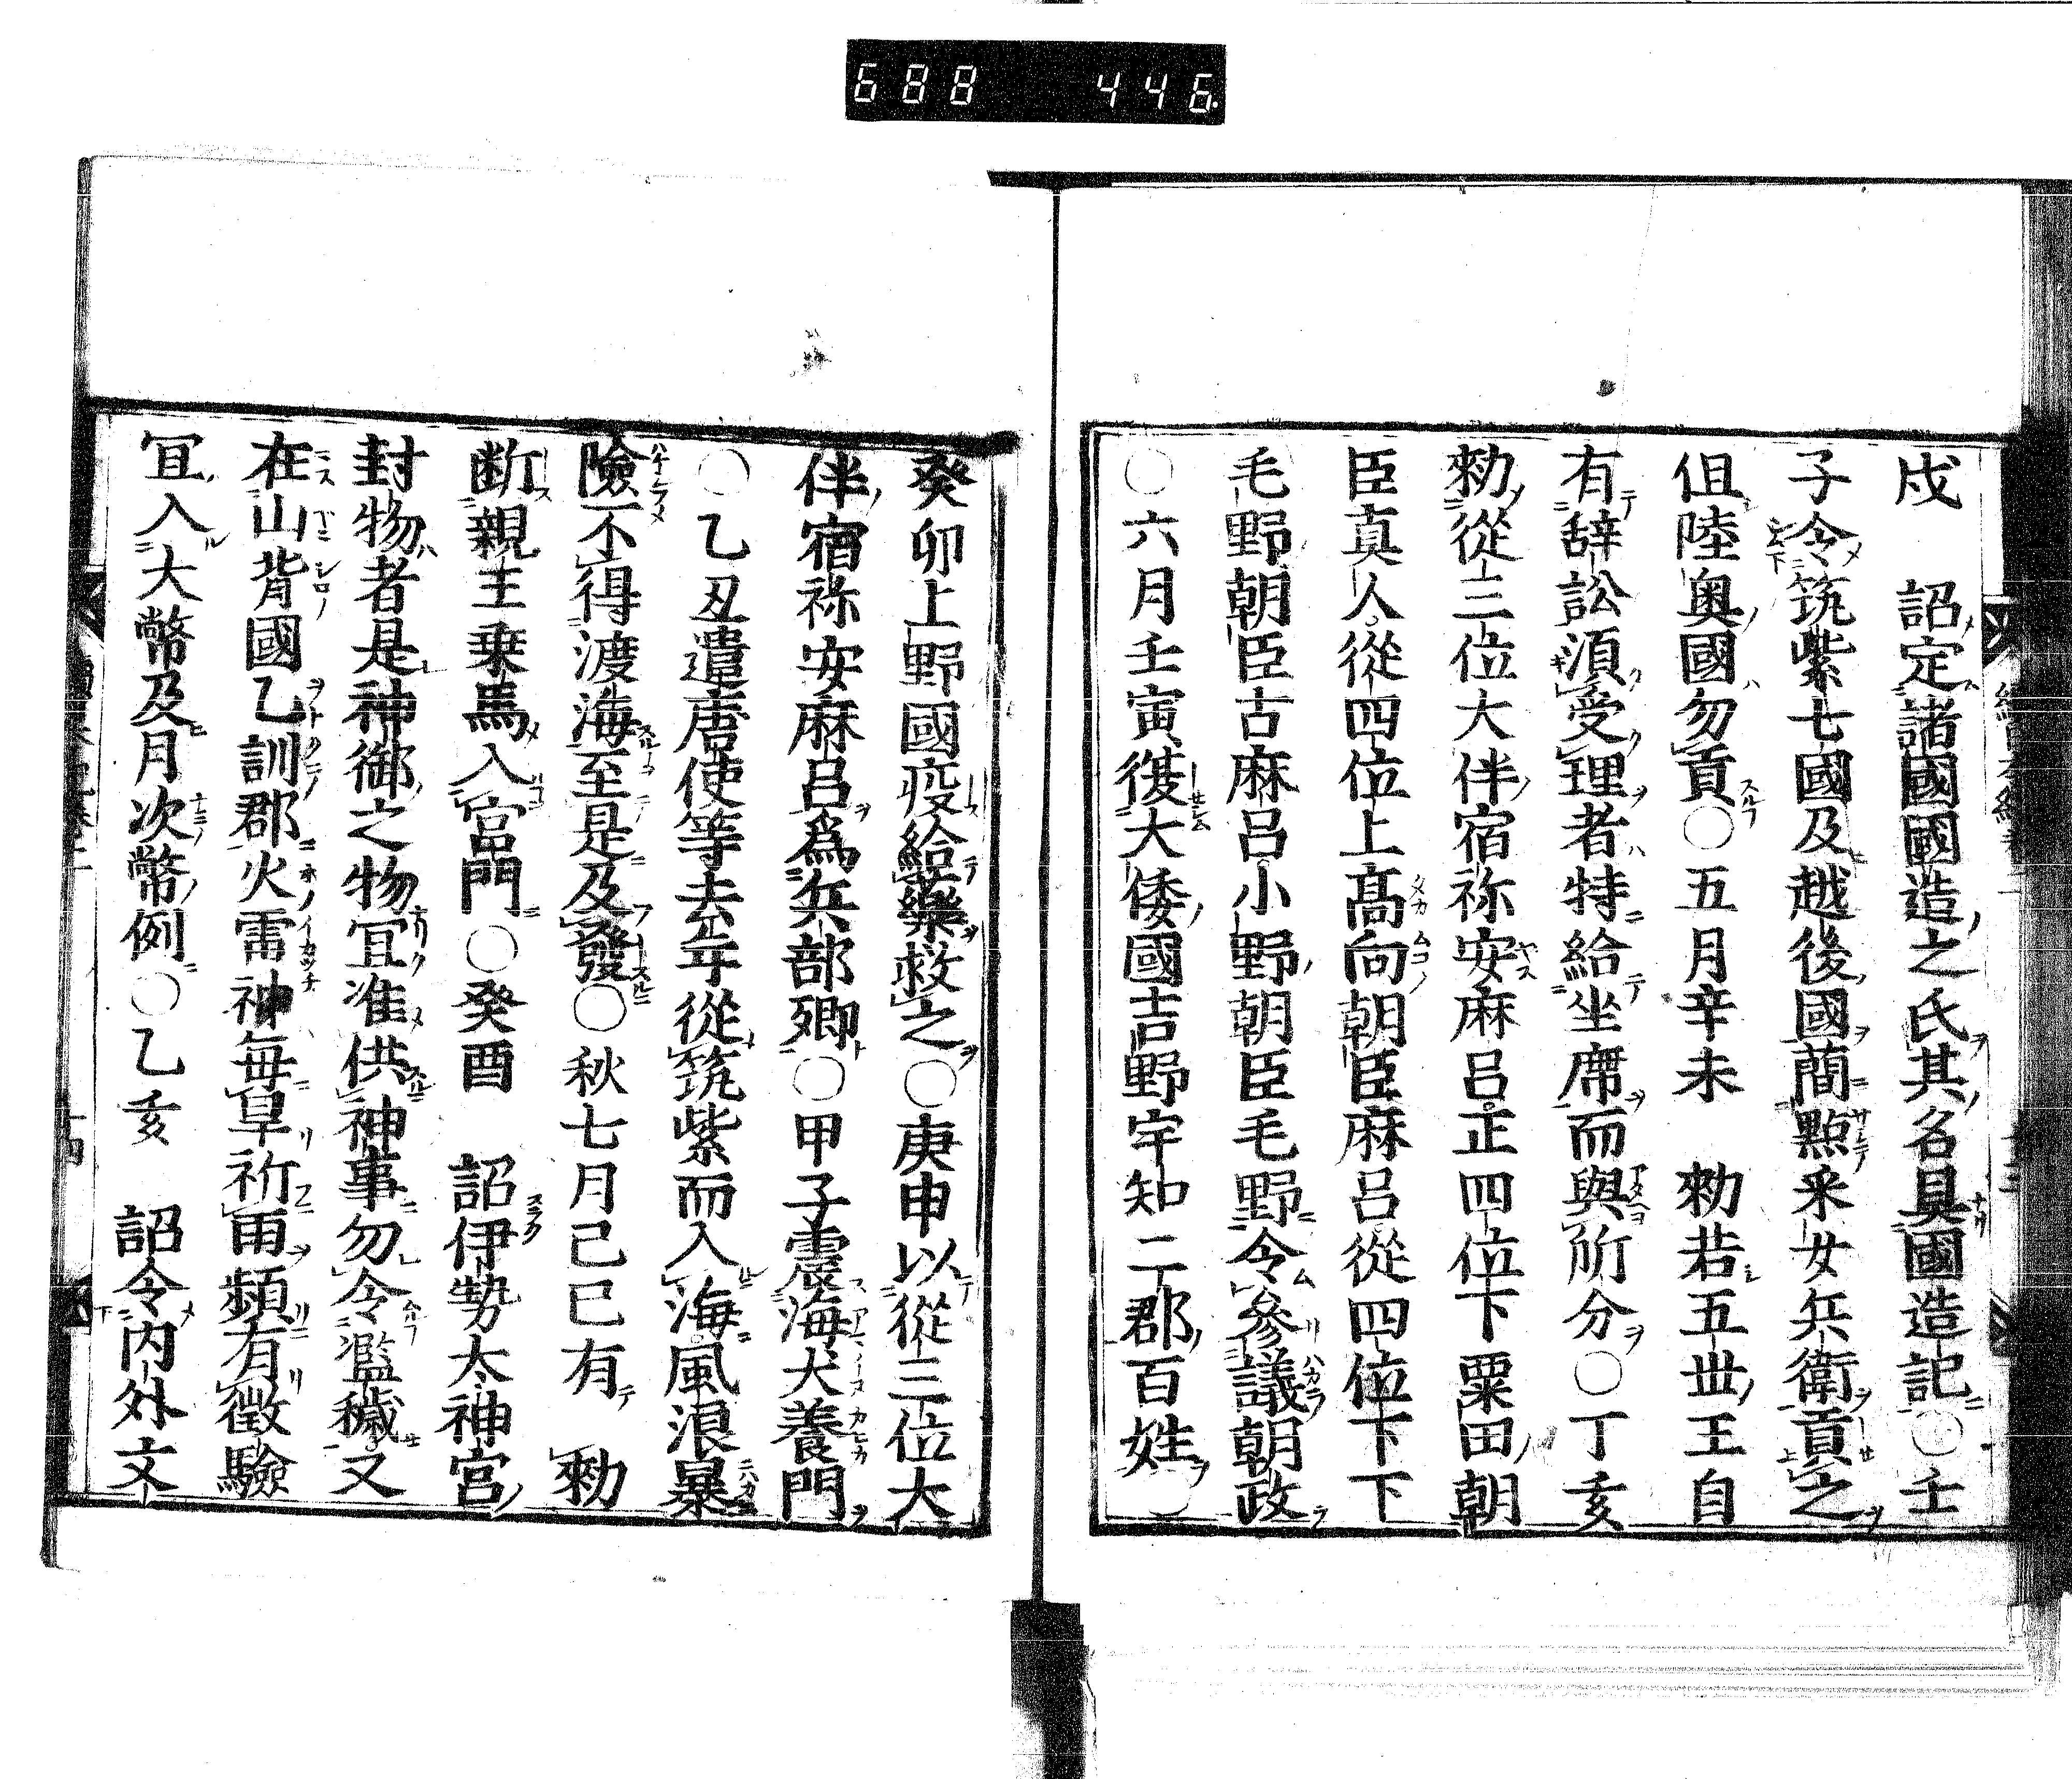 688 446.
戍 詔定諸國國造之氏其名具國造記○壬
子令筑紫七國及越後國蕳點釆女兵衛貢之
但陸奥國勿貢○五月辛未 勅若五丗王自
有辞訟湏受理者特給坐席而與所分○丁亥
勅從三位大伴宿祢安麻呂正四位下粟田朝
臣真人從四位上髙向朝臣麻呂從四位下下
毛野朝臣古麻呂小野朝臣毛野令參議朝政
○六月壬寅復大倭國吉野宇知二郡百姓○
癸卯上野國疫給藥救之○庚申以從三位大
伴宿祢安麻呂爲兵部卿○甲子震海犬養門
○乙丑遣唐使等去年從筑紫而入海風浪暴
險不得渡海至是及發○秋七月己巳有 勅
断親王乗馬入宮門○癸酉 詔伊勢太神宮
封物者是神御之物冝准供神事勿令濫穢又
在山背國乙訓郡火雷神每旱祈雨頻有徵驗
冝入大幣及月次幣例○乙亥 詔令内外文